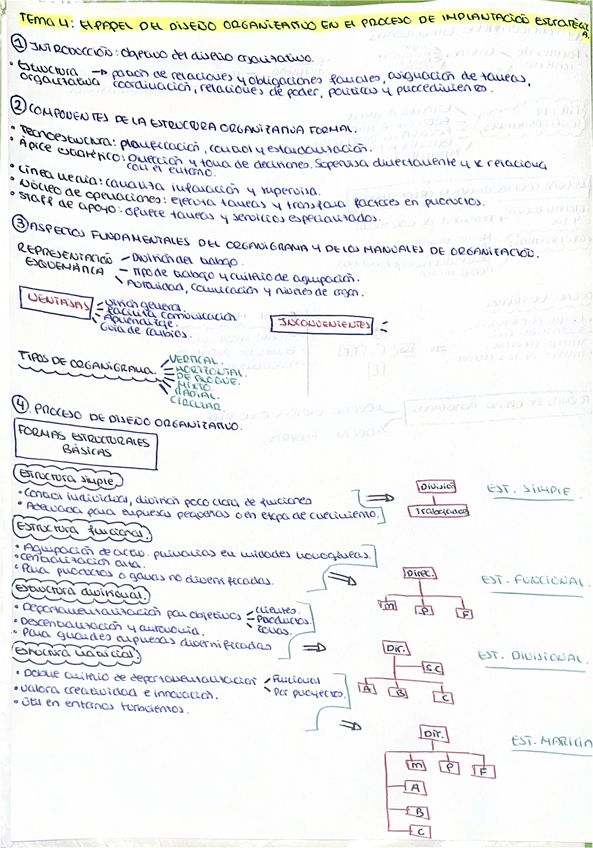 TEMA 4: El PAPEL DEL DISEÑO ORGANIZATIVO EN EL PROCESO DE IMPLANTACIÓN ESTRATÉGICA.
① INTRODUCCIÓN: objetivo del diseño organizativo.
• Estructura organizativa → patrón de relaciones y obligaciones formales, asignación de tareas,
coordinación, relaciones de poder, políticas y procedimientos.
② COMPONENTES DE LA ESTRUCTURA ORGANIZATIVA FORMAL.
• Tecnoestructura: planificación, control y estandarización.
• Ápice estratégico: Dirección y toma de decisiones. Supervisa directamente y se relaciona
con el entorno.
• Línea media: canaliza información y supervisa.
• Núcleo de operaciones: ejecuta tareas y transforma factores en productos.
• Staff de apoyo: ofrece tareas y servicios especializados.
③ ASPECTOS FUNDAMENTALES DEL ORGANIGRAMA Y DE LOS MANUALES DE ORGANIZACIÓN.
REPRESENTACIÓN ESQUEMÁTICA
División del trabajo.
Tipo de trabajo y criterio de agrupación.
Autoridad, comunicación y niveles de organ.
VENTAJAS
Visión general
Facilita comunicación
Aprendizaje.
Guía de cambios.
INCONVENIENTES
TIPOS DE ORGANIGRAMA.
VERTICAL.
HORIZONTAL.
DE BLOQUE.
MIXTO.
RADIAL.
CIRCULAR.
④ PROCESO DE DISEÑO ORGANIZATIVO.
FORMAS ESTRUCTURALES
BÁSICAS
Estructura simple.
• Control individual, división poco clara de funciones
• Adecuada para empresas pequeñas o en etapa de crecimiento.
División
Trabajadores
EST. SIMPLE
Estructura funcional.
• Agrupación de activ. primarias en unidades homogéneas.
• Centralización alta.
• Para productos o gamas no diversificadas.
Direc.
M
P
F
EST. FUNCIONAL.
Estructura divisional.
• Departamentalización por objetivos
Clientes.
Productos.
Zonas.
• Descentralización y autonomía.
• Para grandes empresas diversificadas
Dir.
S.C
A
B
C
EST. DIVISIONAL.
Estructura matricial.
• Doble criterio de departamentalización
Funcional
Por proyectos.
• Valora creatividad e innovación.
• Útil en entornos turbulentos.
Dir.
M
P
F
A
B
C
EST. MATRICIA